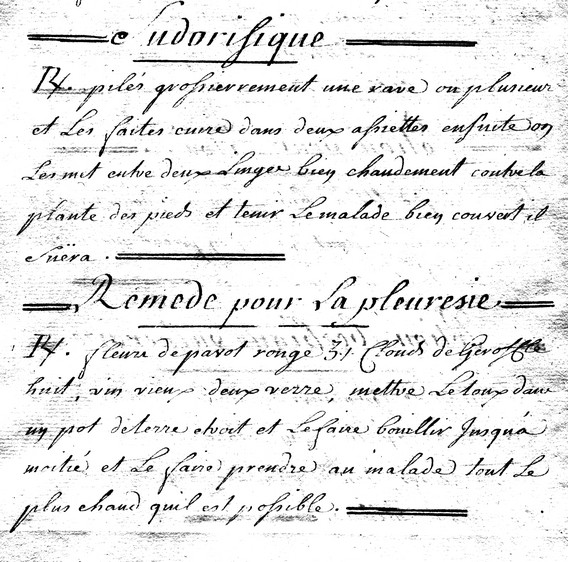 Sudorifique
℞. pilés grossierrement une rave ou plusieur
et Les faites cuire dans deux assiettes ensuite on
Les met entre deux Linges bien chaudement contre la
plante des pieds et tenir Le malade bien couvert il
suëra.
Remede pour La pleuresie
℞. fleurs de pavot rouge ʒ.j Clouds de Geroffle
huit, vin vieux deux verre, mettre Le tout dans
un pot de terre etroit et Le faire bouillir Jusqu'a
moitié et Le faire prendre au malade tout Le
plus chaud quil est possible.